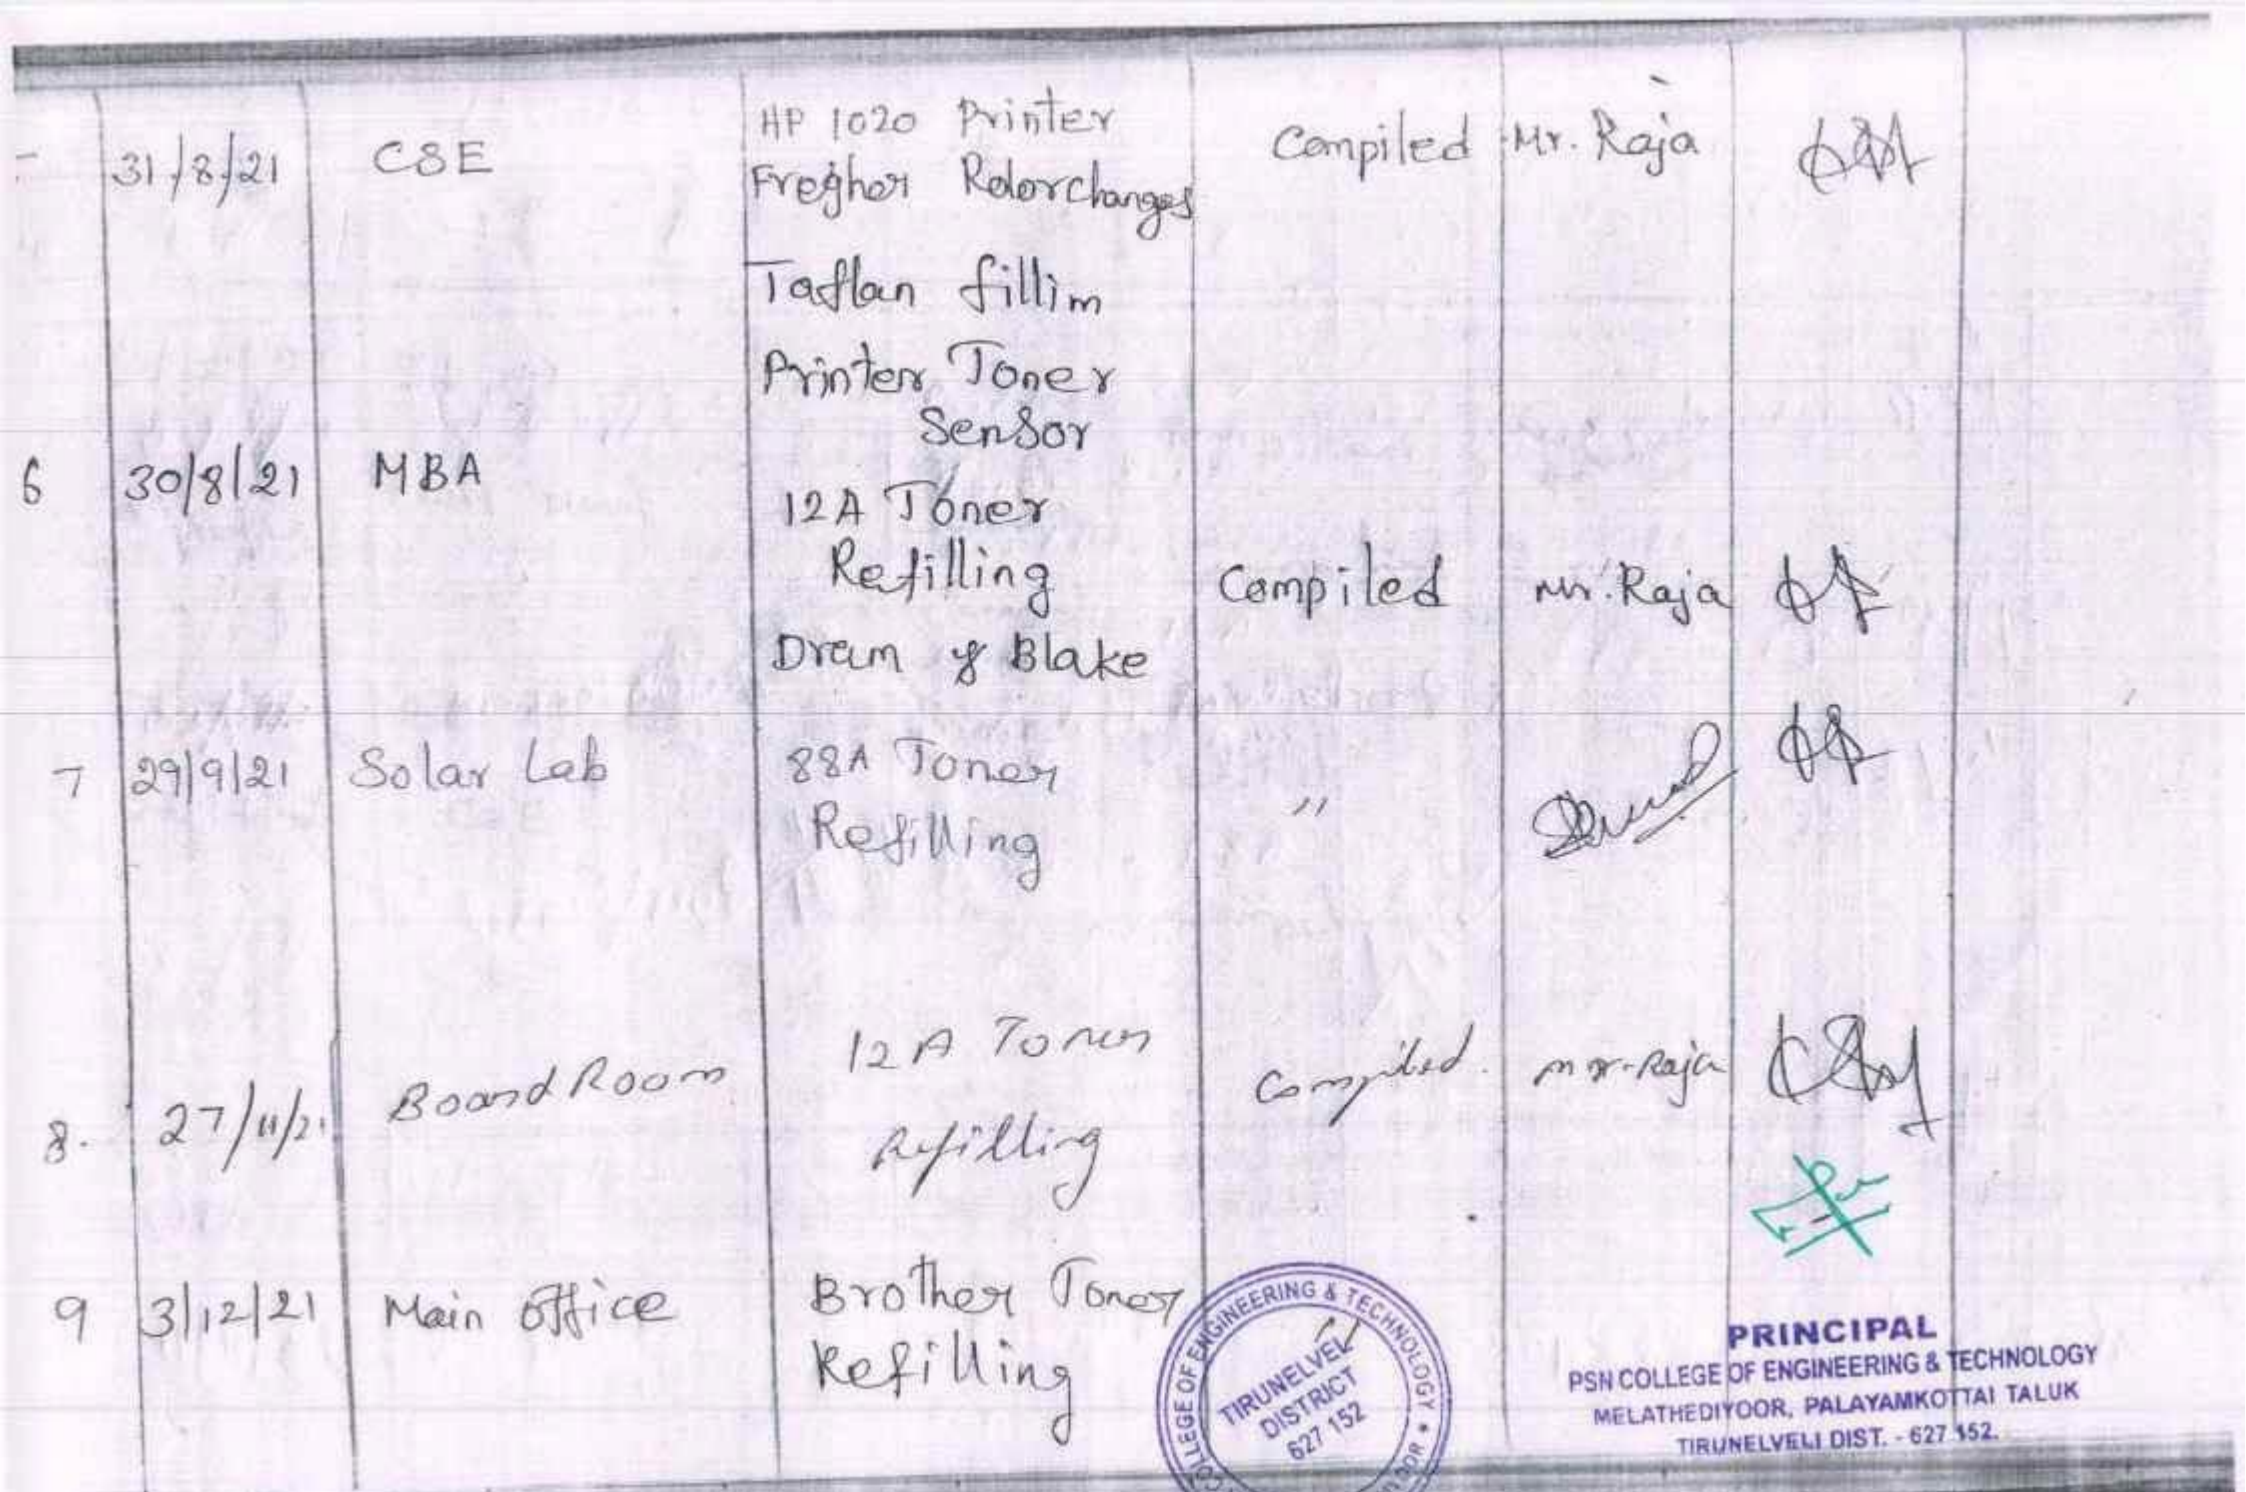 31/8/21 CSE HP 1020 Printer Compiled Mr. Raja
Fregher Rolorchanges
Taflan fillim
Printer Toner
Sensor
6 30/8/21 MBA
12A Toner
Refilling Compiled Mr. Raja
Dram & Blake
7 29/9/21 Solar Lab 88A Toner "
Refilling
8. 27/11/21 Board Room 12A Toner Compiled. Mr. Raja
Refilling
9 3/12/21 Main Office Brother Toner "
Refilling
COLLEGE OF ENGINEERING & TECHNOLOGY
TIRUNELVELI
DISTRICT
627 152
PRINCIPAL
PSN COLLEGE OF ENGINEERING & TECHNOLOGY
MELATHEDIYOOR, PALAYAMKOTTAI TALUK
TIRUNELVELI DIST. - 627 152.